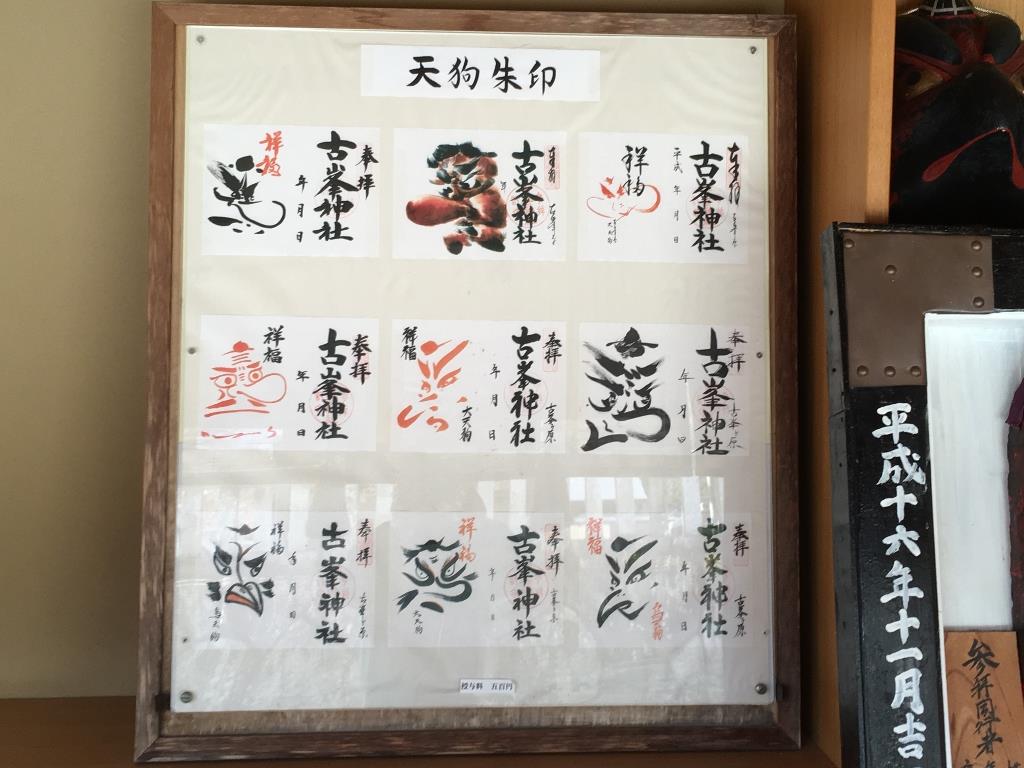 天狗朱印
奉拝
古峯神社
年月日
祥福
奉拝
古峯神社
年
奉拝
古峯神社
平成 年 月 日
祥福
奉拝
古峯神社
年月日
祥福
奉拝
古峯ヶ原
古峯神社
年月日
大天狗
祥福
奉拝
古峯ヶ原
古峯神社
年月日
奉拝
古峯ヶ原
古峯神社
年月日
祥福
烏天狗
奉拝
古峯ヶ原
古峯神社
年月日
祥福
大天狗
奉拝
古峯ヶ原
古峯神社
年月日
烏天狗
祥福
授与料 五百円
平成十六年十一月吉